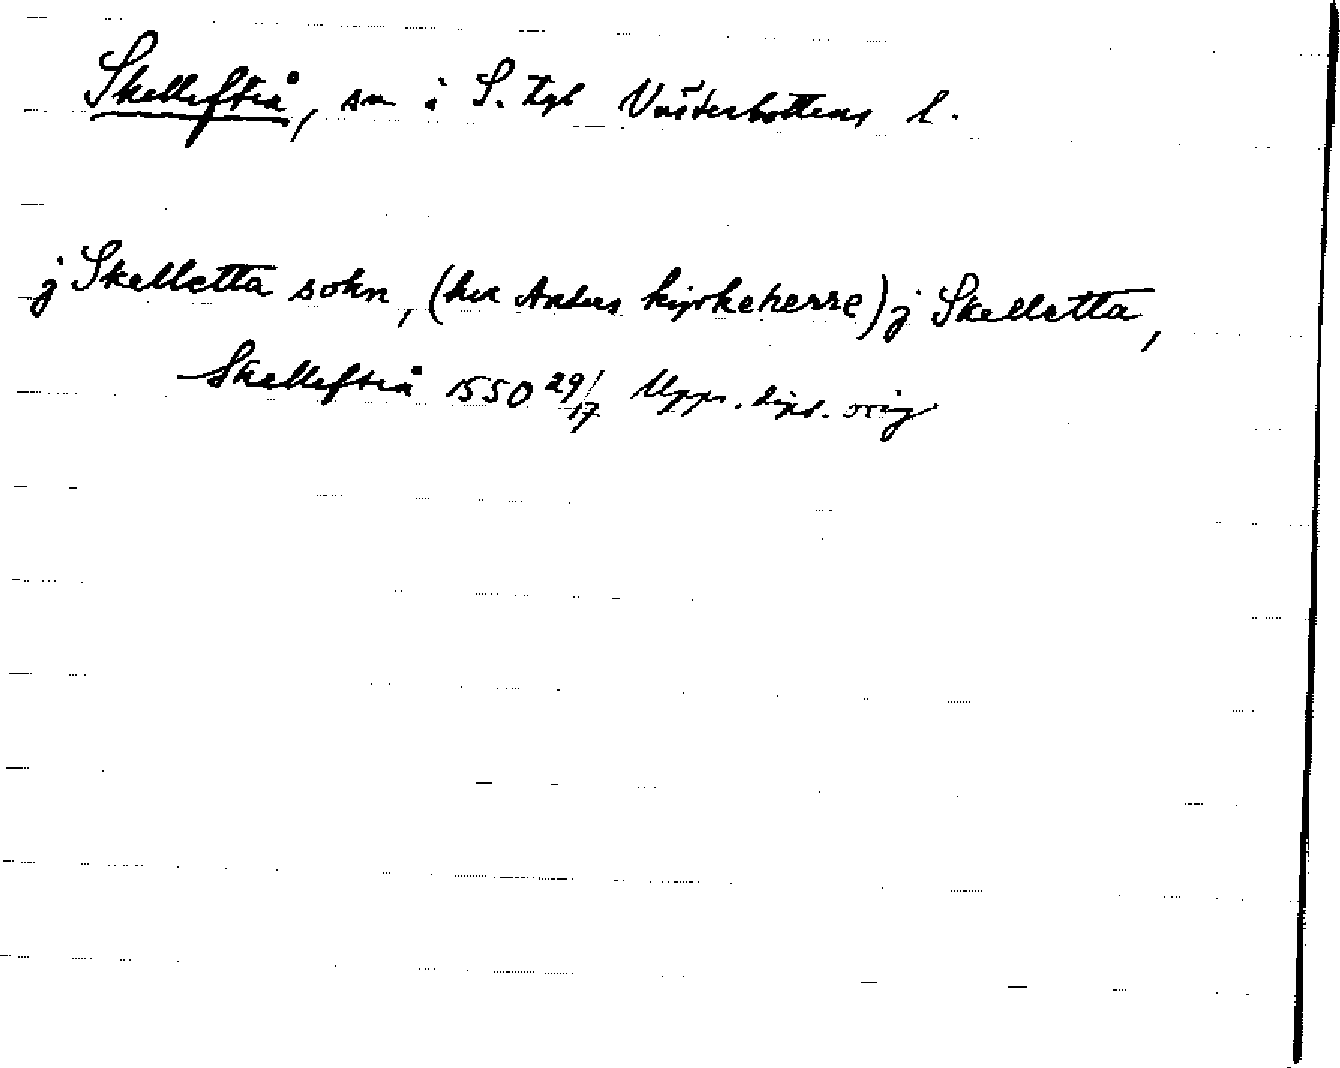 Skellefteå, sn i S. tgl Västerbottens l.
j Skelletta sokn, (her Anders kyrkeherre) j Skelletta,
Skellefteå 1550 29/17 Upps. dipl. orig